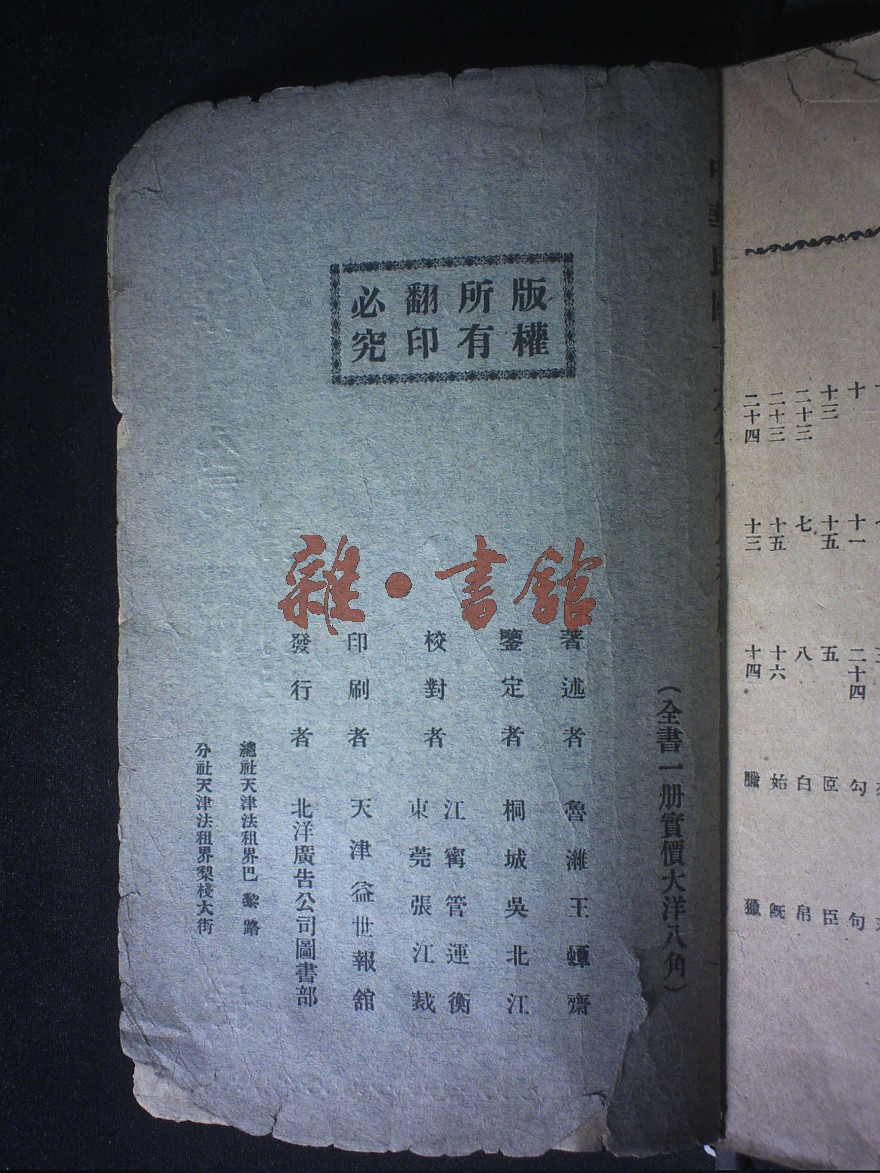 版權
所有
翻印
必究
雜·書館
（全書一册實價大洋八角）
著述者 魯濰王蟫齋
鑒定者 桐城吳北江
校對者 江甯管運衡
東莞張江裁
印刷者 天津益世報館
發行者 北洋廣告公司圖書部
總社天津法租界巴黎路
分社天津法租界梨棧大街
十 十一 二十四 勾 句
十三 十五 五 臣
二十三 七 八 白 帛
二十三 十五 十六 始 旣
二十四 十三 十四 臘 獵